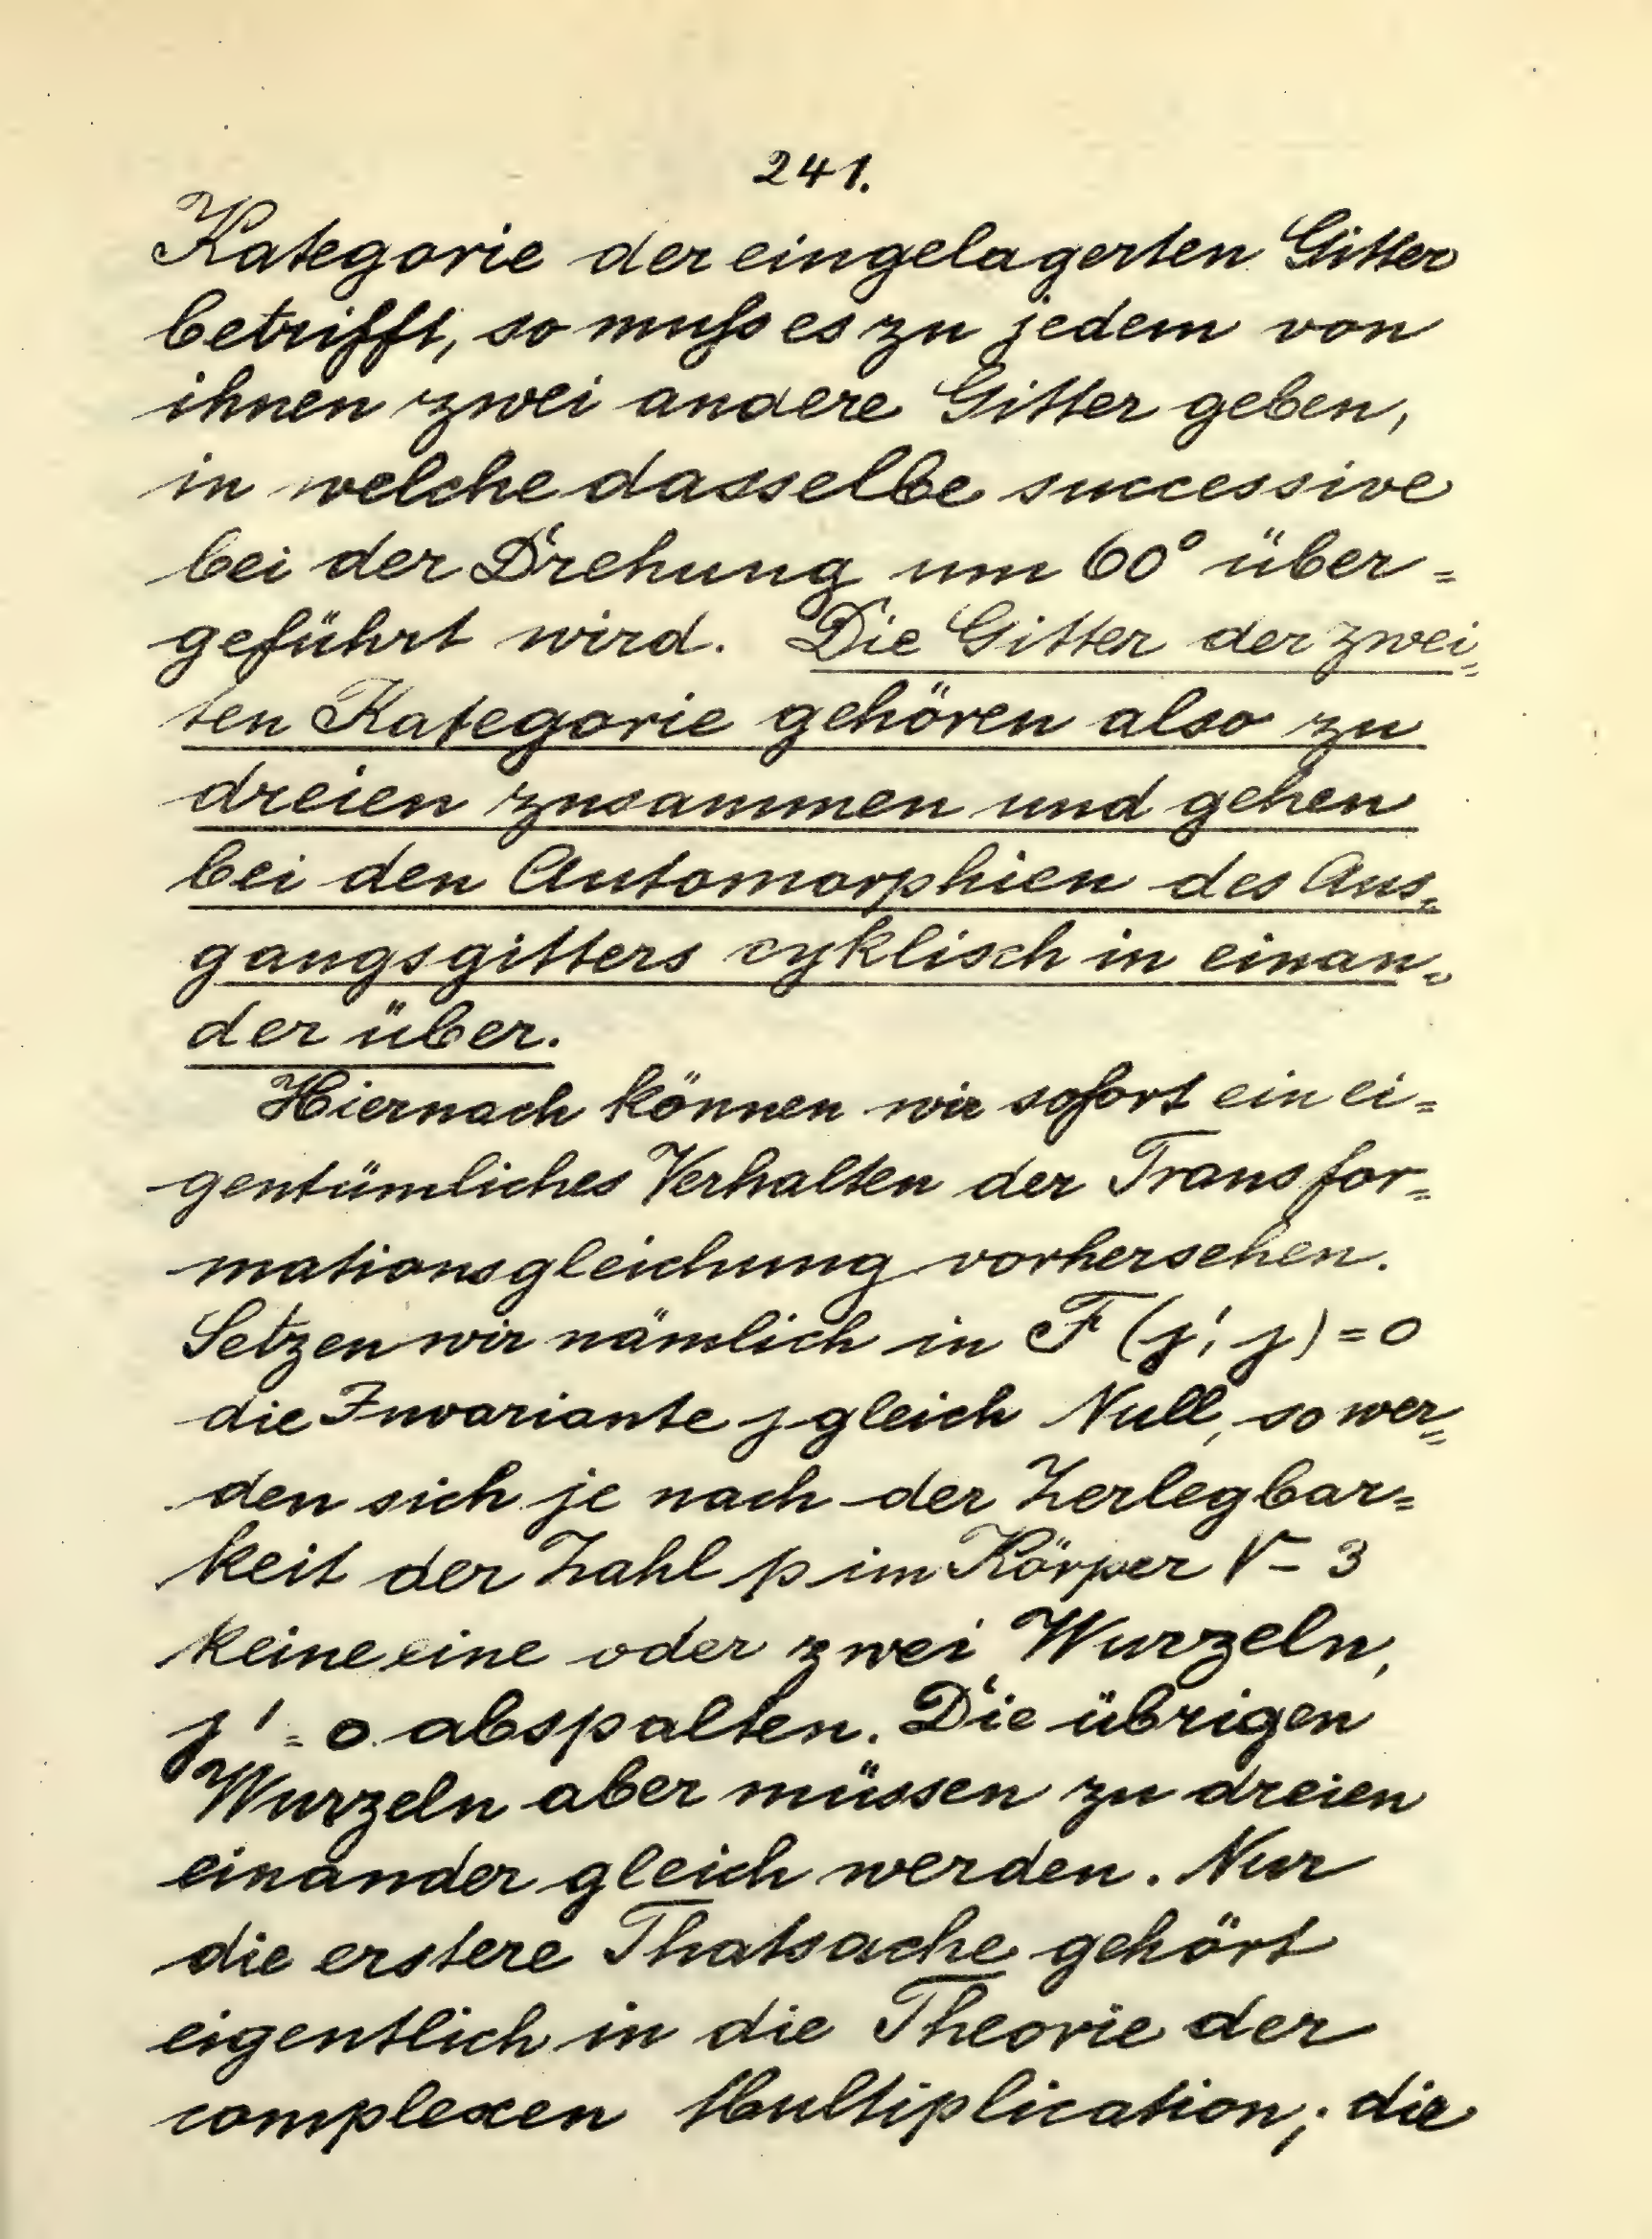 241.
Kategorie der eingelagerten Gitter
betrifft, so muſs es zu jedem von
ihnen zwei andere Gitter geben,
in welche dasselbe successive
bei der Drehung um 60° über=
geführt wird. Die Gitter der zwei=
ten Kategorie gehören also zu
dreien zusammen und gehen
bei den Automorphien des Aus=
gangsgitters cyklisch in einan=
der über.
Hiernach können wir sofort ein ei=
gentümliches Verhalten der Transfor=
mationsgleichung vorhersehen.
Setzen wir nämlich in F (j', j) = 0
die Invariante j gleich Null, so wer=
den sich je nach der Zerlegbar=
keit der Zahl p im Körper √-3
keine eine oder zwei Wurzeln,
j' = 0 abspalten. Die übrigen
Wurzeln aber müssen zu dreien
einander gleich werden. Nur
die erstere Thatsache gehört
eigentlich in die Theorie der
complexen Multiplication; die